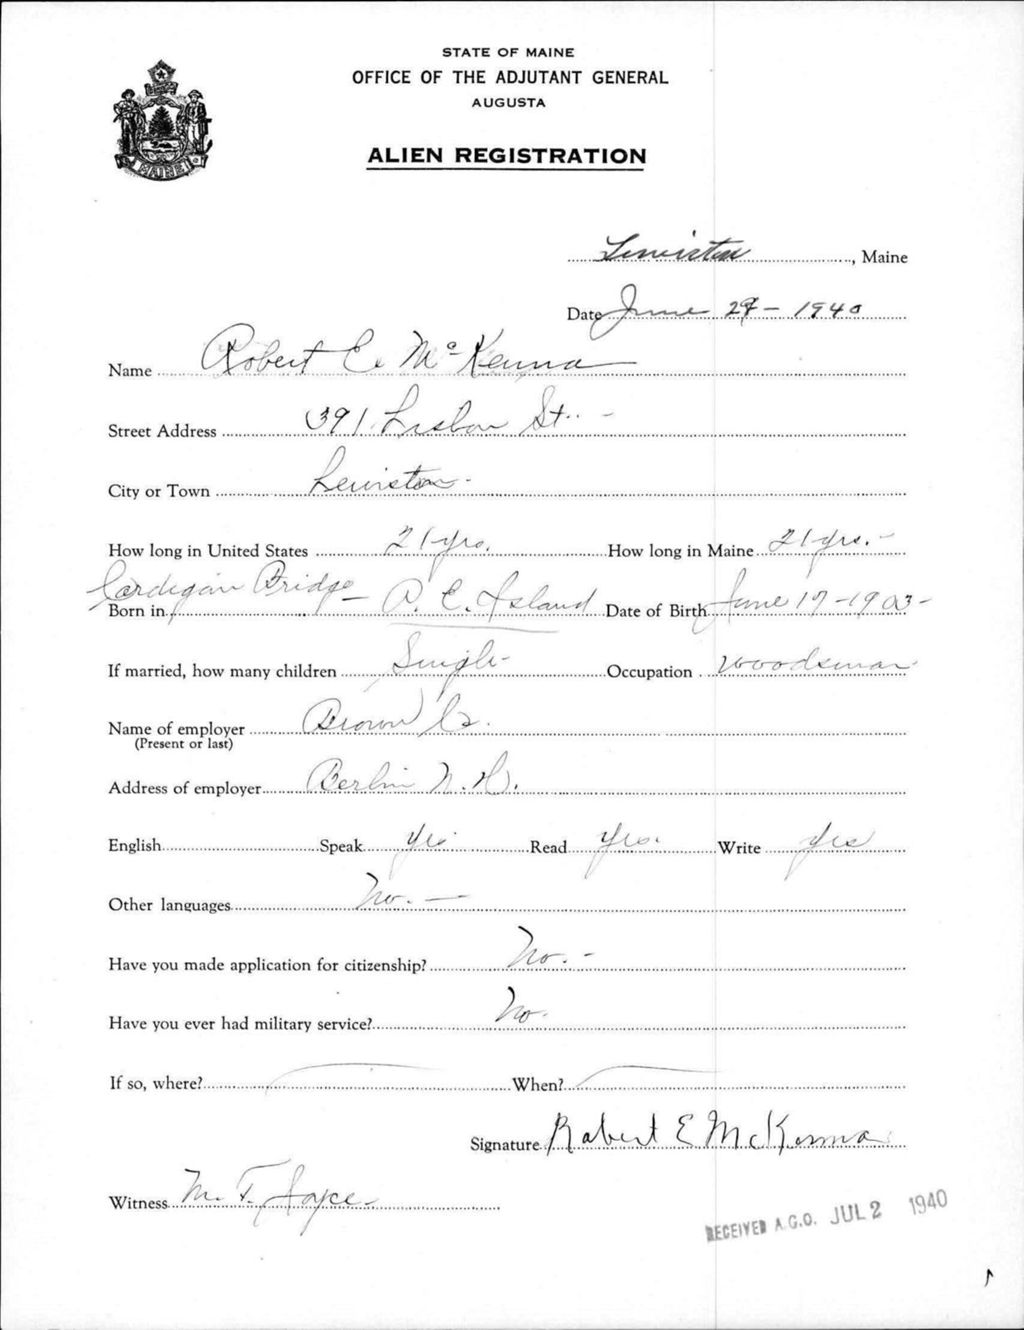 STATE OF MAINE
OFFICE OF THE ADJUTANT GENERAL
AUGUSTA
ALIEN REGISTRATION
MAINE
Lewiston, Maine
Date June 29 - 1940
Name Robert E. McKenna
Street Address 391 Lisbon St. -
City or Town Lewiston -
How long in United States 21 yrs. How long in Maine 21 yrs. -
Cardigan Bridge -
Born in P. E. Island Date of Birth June 17 - 1903 -
If married, how many children Single - Occupation woodsman
Name of employer Brown Co.
(Present or last)
Address of employer Berlin N. H.
English Speak Yes Read Yes. Write Yes
Other languages No. -
Have you made application for citizenship? No. -
Have you ever had military service? No.
If so, where? When?
Signature Robert E McKenna
Witness M. T. Joyce
RECEIVED A.G.O. JUL 2 1940